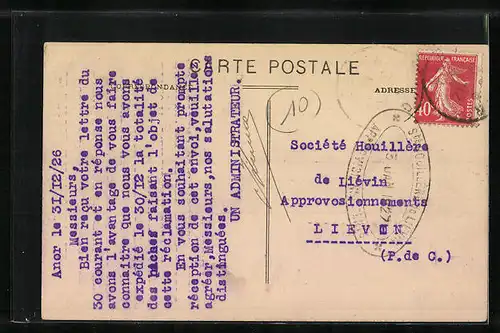 CARTE POSTALE
ADRESSE
RÉPUBLIQUE FRANÇAISE
40c
POSTES
(10)
Anor le 31/12/26
Messieurs,
Bien reçu votre lettre du
30 courant et en réponse nous
avons l'avantage de vous faire
connaitre que nous vous avons
expédié le 30/12 la totalité
des pâches faisant l'objet de
cette réclamation.
En vous souhaitant prompte
réception de cet envoi, veuillez
agréer, Messieurs, nos salutations
distinguées.
UN ADMINISTRATEUR.
Société Houillère
de Liévin
Approvosionnements
LIEVON
(P.de C.)